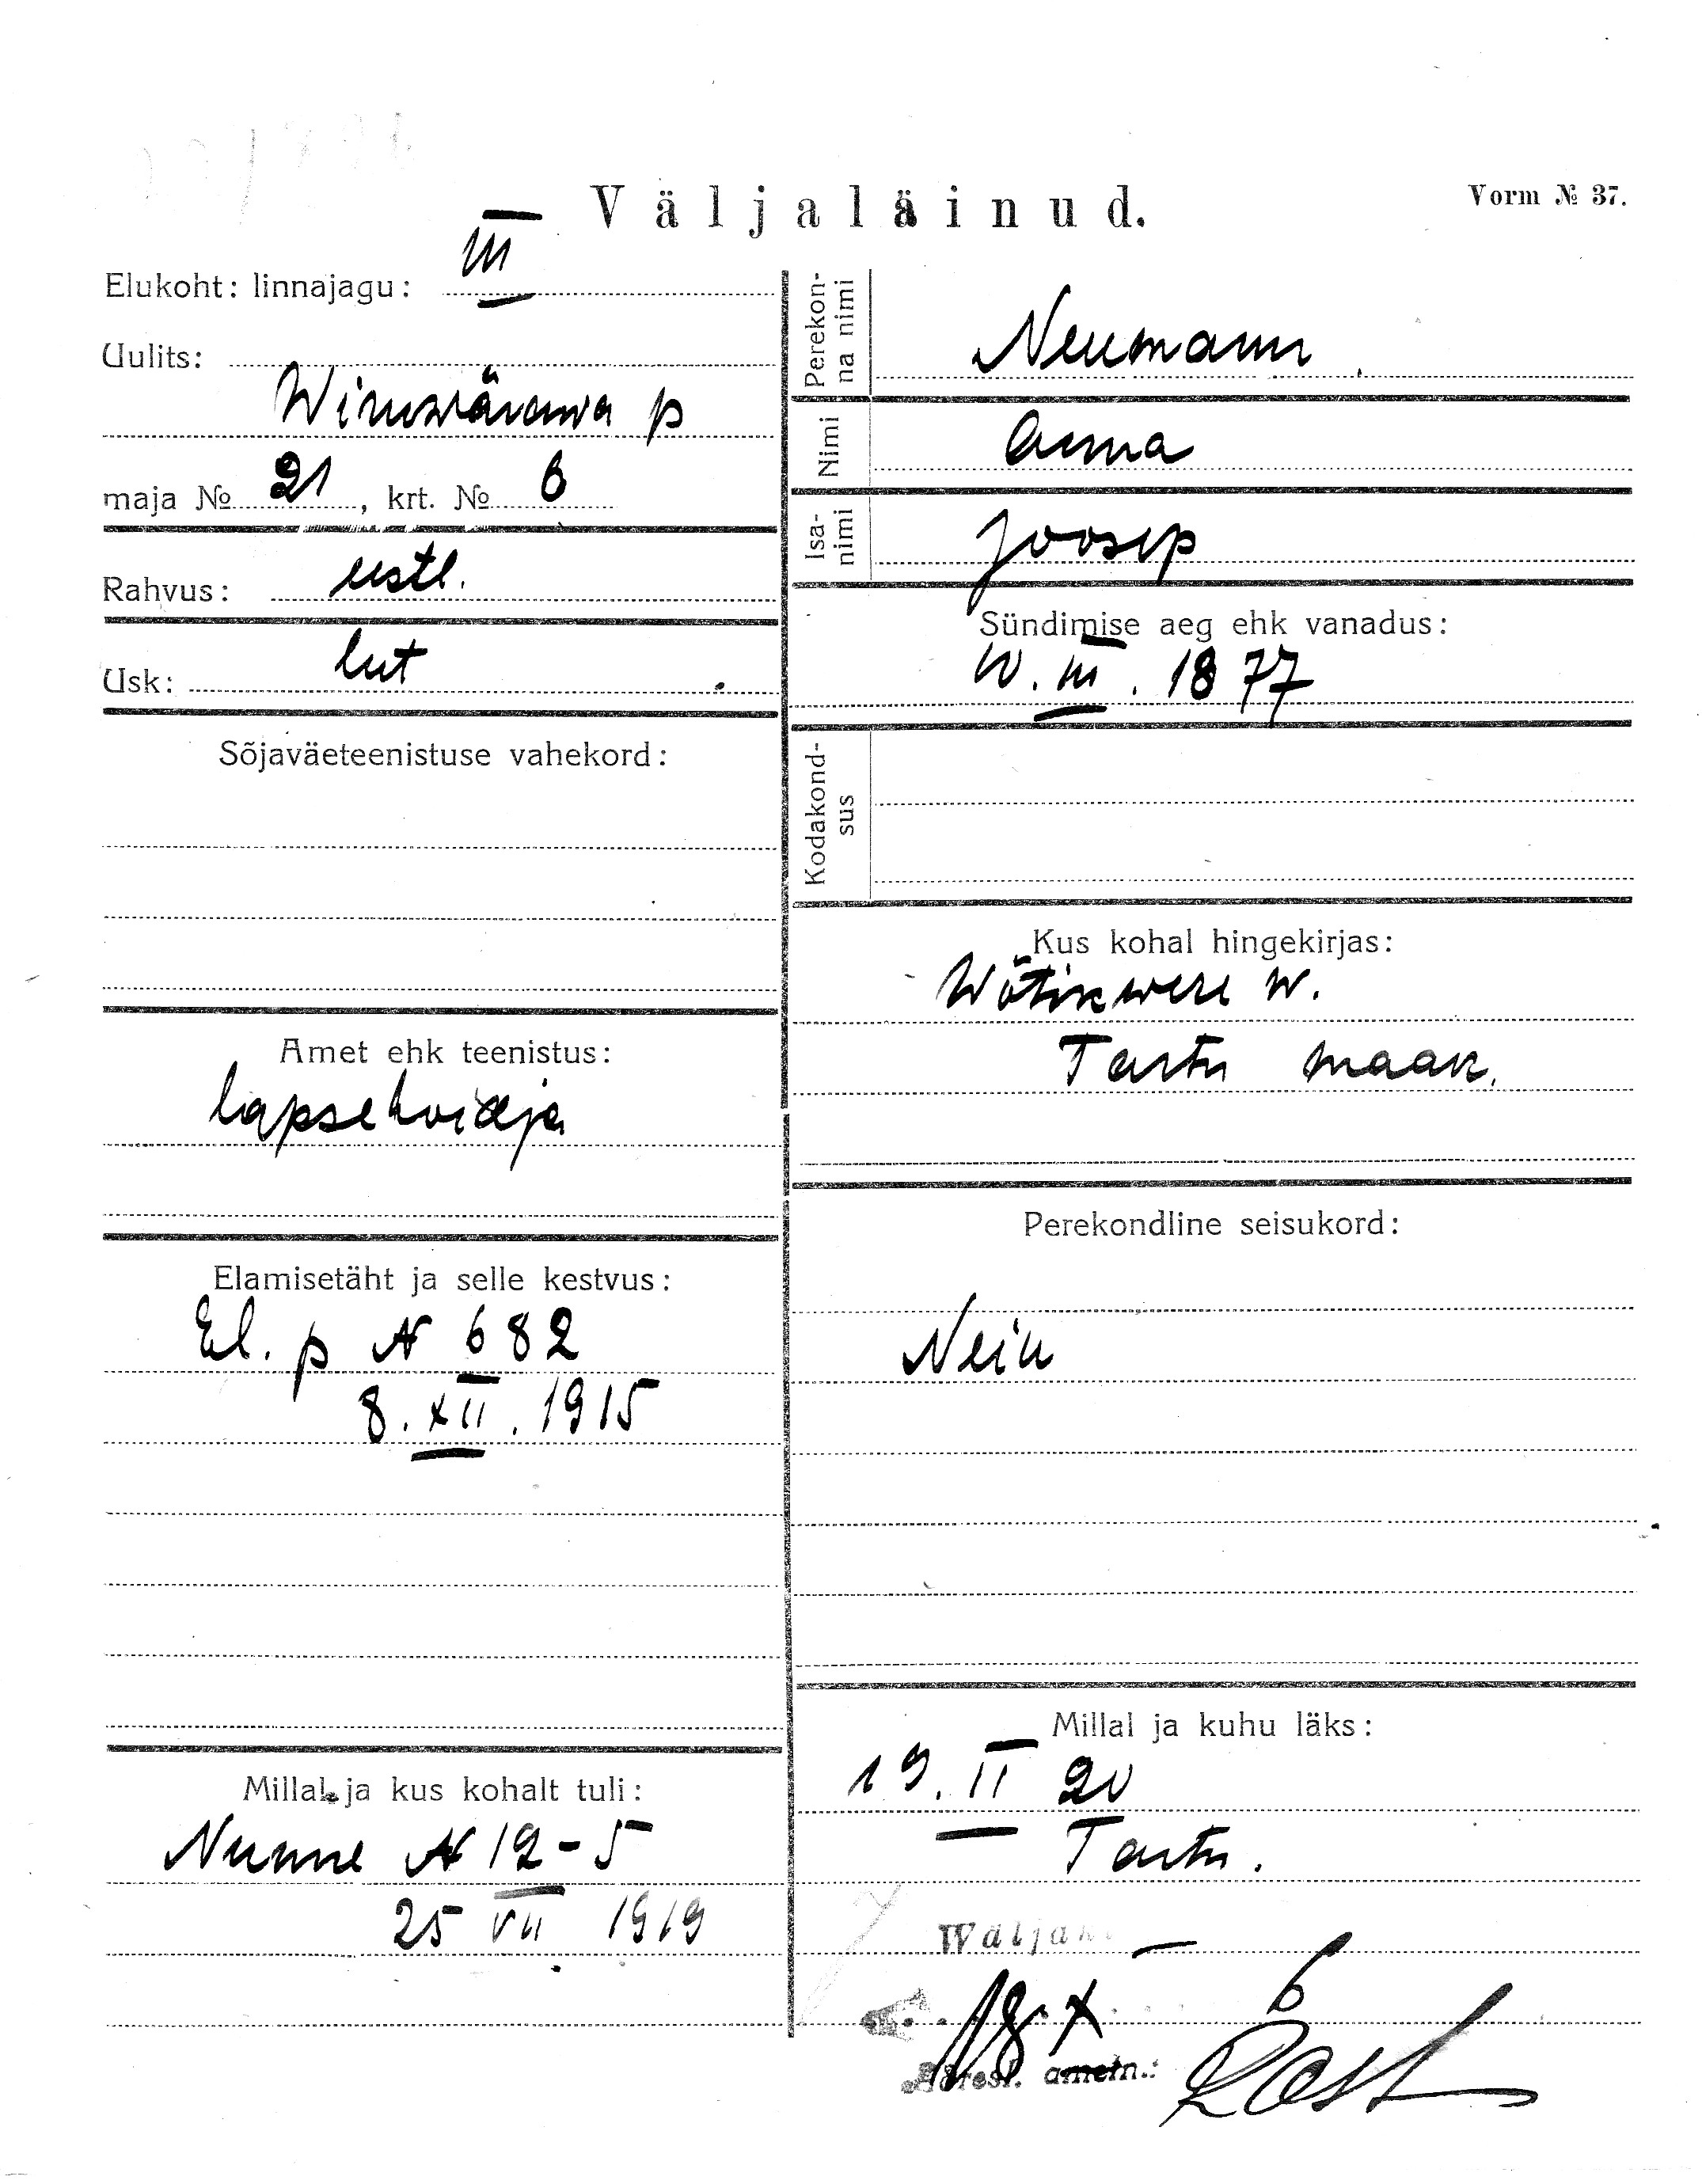 Väljaläinud.
Vorm № 37.
Elukoht: linnajagu: III
Uulits:
Wiruwärawa p
maja № 21, krt. № 6
Rahvus: eestl.
Usk: lut
Sõjaväeteenistuse vahekord:
Amet ehk teenistus:
lapsehoidja
Elamisetäht ja selle kestvus:
El. p N 682
8. XII. 1915
Millal ja kus kohalt tuli:
Nunne N 12-5
25 VII 1919
Perekon-
na nimi
Neumann
Nimi
Anna
Isa-
nimi
Joosep
Sündimise aeg ehk vanadus:
10. III. 1877
Kodakond-
sus
Kus kohal hingekirjas:
Wõtikwere w.
Tartu maak.
Perekondline seisukord:
Neiu
Millal ja kuhu läks:
19. II 20
Tartu.
Adresl. ametn.: